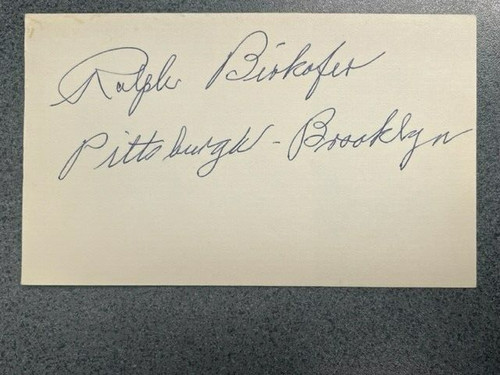 Ralph Birkofer
Pittsburgh - Brooklyn